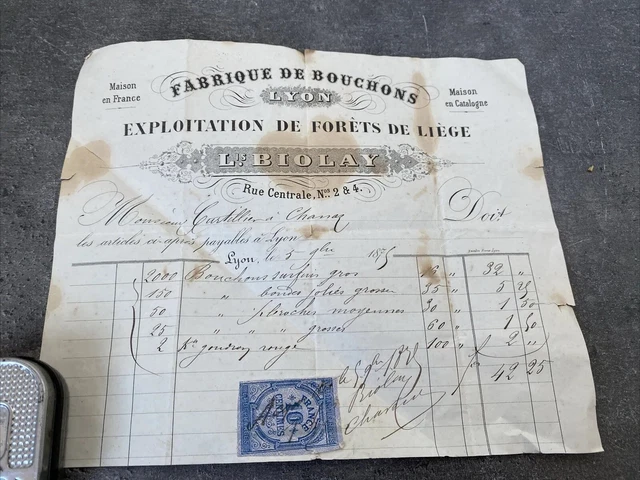 FABRIQUE DE BOUCHONS
Maison en France
LYON
Maison en Catalogne
EXPLOITATION DE FORÊTS DE LIÈGE
Ls. BIOLAY
Rue Centrale, Nos. 2 & 4.
Monsieur à Doit
les articles ci-après payables à Lyon
Lyon, le 5 1875
2000 Bouchons surfins gros 16 " 32 "
150 " bondes jolies grosses 35 " 5 25
50 " broches moyennes 30 " 1 50
25 " " " grosses 60 " 1 50
2 Ko goudron rouge 100 " 2 "
42 25
Biolay
FRANCE
10